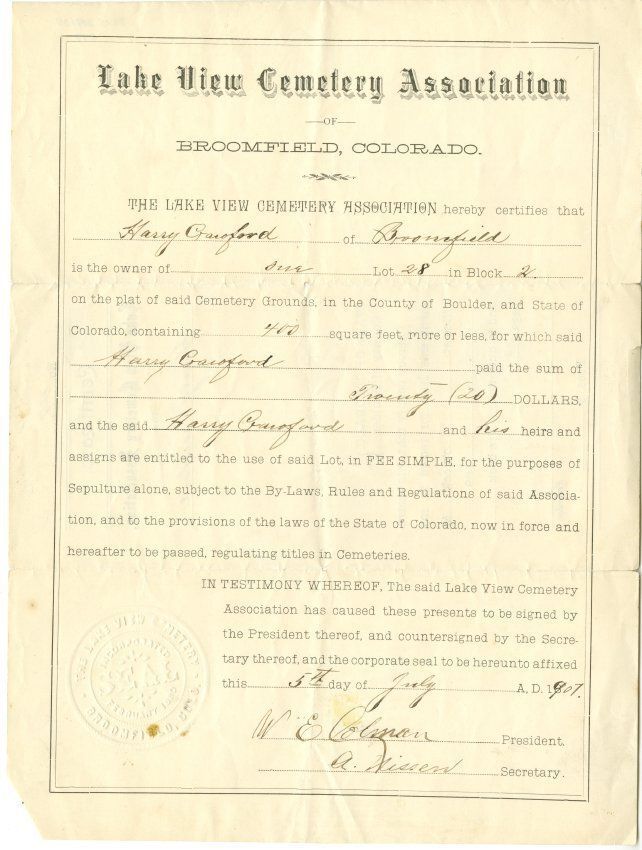 Lake View Cemetery Association
—OF—
BROOMFIELD, COLORADO.
THE LAKE VIEW CEMETERY ASSOCIATION hereby certifies that
Harry Crawford of Broomfield
is the owner of one Lot 28 in Block 2
on the plat of said Cemetery Grounds, in the County of Boulder, and State of
Colorado, containing 400 square feet, more or less, for which said
Harry Crawford paid the sum of
Twenty (20) DOLLARS,
and the said Harry Crawford and his heirs and
assigns are entitled to the use of said Lot, in FEE SIMPLE, for the purposes of
Sepulture alone, subject to the By-Laws, Rules and Regulations of said Associa-
tion, and to the provisions of the laws of the State of Colorado, now in force and
hereafter to be passed, regulating titles in Cemeteries.
IN TESTIMONY WHEREOF, The said Lake View Cemetery
Association has caused these presents to be signed by
the President thereof, and countersigned by the Secre-
tary thereof, and the corporate seal to be hereunto affixed
this 5th day of July A, D. 1907.
W E Colman President.
A. Nissen Secretary.
THE LAKE VIEW CEMETERY
INCORPORATED
SEAL
BROOMFIELD, COLO.